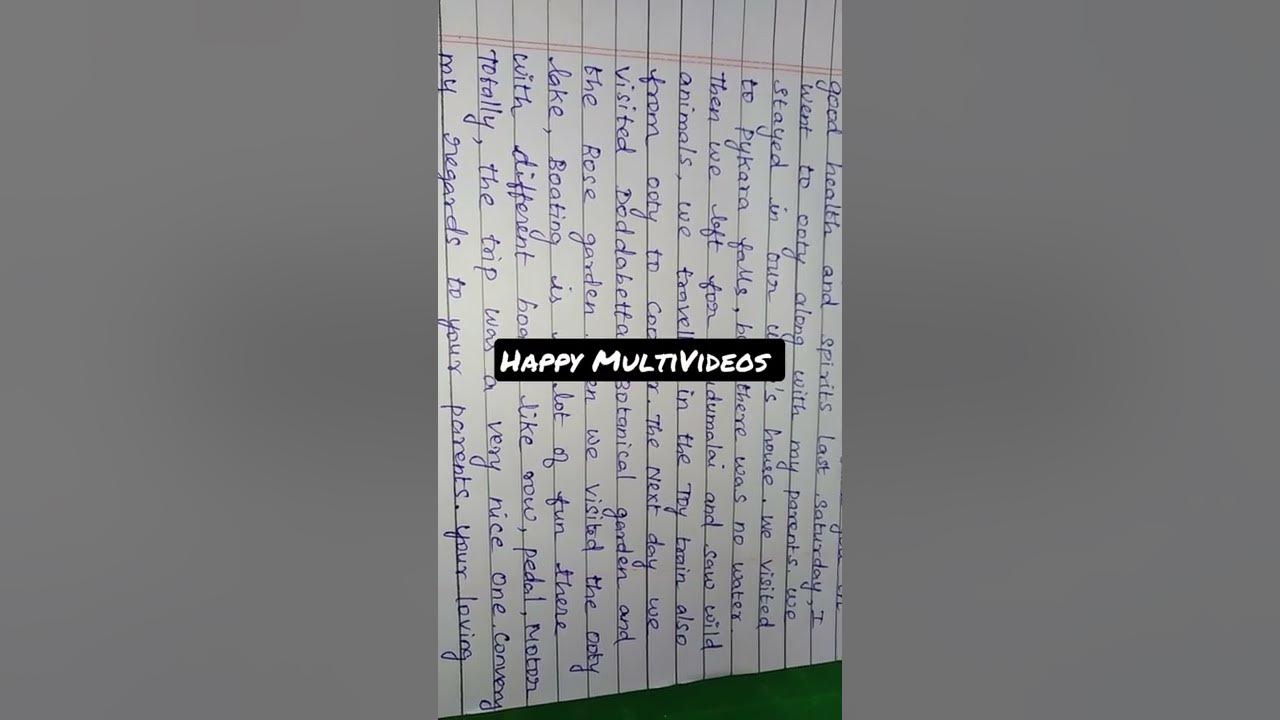 good health and spirits last saturday, I
went to ooty along with my parents. we
stayed in our 's house. we visited
to Pykara falls, there was no water.
then we left for dumalai and saw wild
animals, we travell in the Toy train also
from ooty to Coo r. The Next day we
visited Doddabetta Botanical garden and
the Rose garden. en we visited the ooty
lake, Boating is lot of fun there
with different boa like row, pedal, Motor
Totally, the trip was a very nice one. Convey
my regards to your parents. your loving
Happy MultiVideos